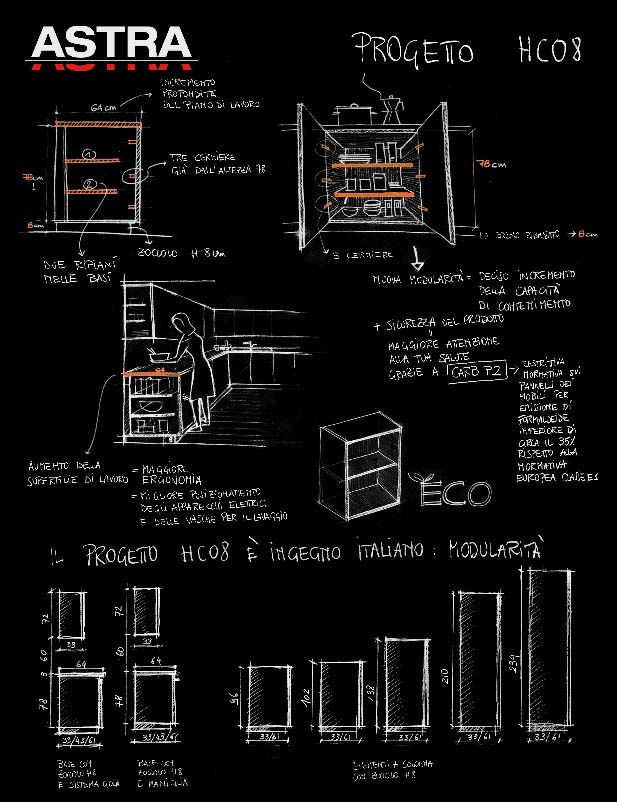 ASTRA
PROGETTO HC08
INCREMENTO
PROFONDITÀ
DEL PIANO DI LAVORO
64cm
1
2
TRE CERNIERE
GIÀ DALL'ALTEZZA 78
78cm
!
8cm
ZOCCOLO H 8cm
DUE RIPIANI
NELLE BASI
78cm
→ 8cm
3 CERNIERE
NUOVA MODULARITÀ = DECISO INCREMENTO
DELLA CAPACITÀ
DI CONTENIMENTO
+ SICUREZZA DEL PRODOTTO
MAGGIORE ATTENZIONE
ALLA TUA SALUTE
GRAZIE A CARB P2
RESTRITTIVA
NORMATIVA SUI
PANNELLI DEI
MOBILI PER
EMISSIONE DI
FORMALDEIDE
INFERIORE DI
CIRCA IL 35%
RISPETTO ALLA
NORMATIVA
EUROPEA CLASSE E1
64
AUMENTO DELLA
SUPERFICIE DI LAVORO
= MAGGIORE
ERGONOMIA
= MIGLIORE POSIZIONAMENTO
DEGLI APPARECCHI ELETTRICI
E DELLE VASCHE PER IL LAVAGGIO
ECO
IL PROGETTO HC08 È INGEGNO ITALIANO: MODULARITÀ
72
33
60
64
3
78
33/43/61
72
33
60
64
78
33/43/61
96
33/61
102
33/61
138
33/61
210
33/61
234
33/61
BASE CON
ZOCCOLO H8
E SISTEMA GOLA
BASE CON
ZOCCOLO H8
E MANIGLIA
ELEMENTI A COLONNA
CON ZOCCOLO H8